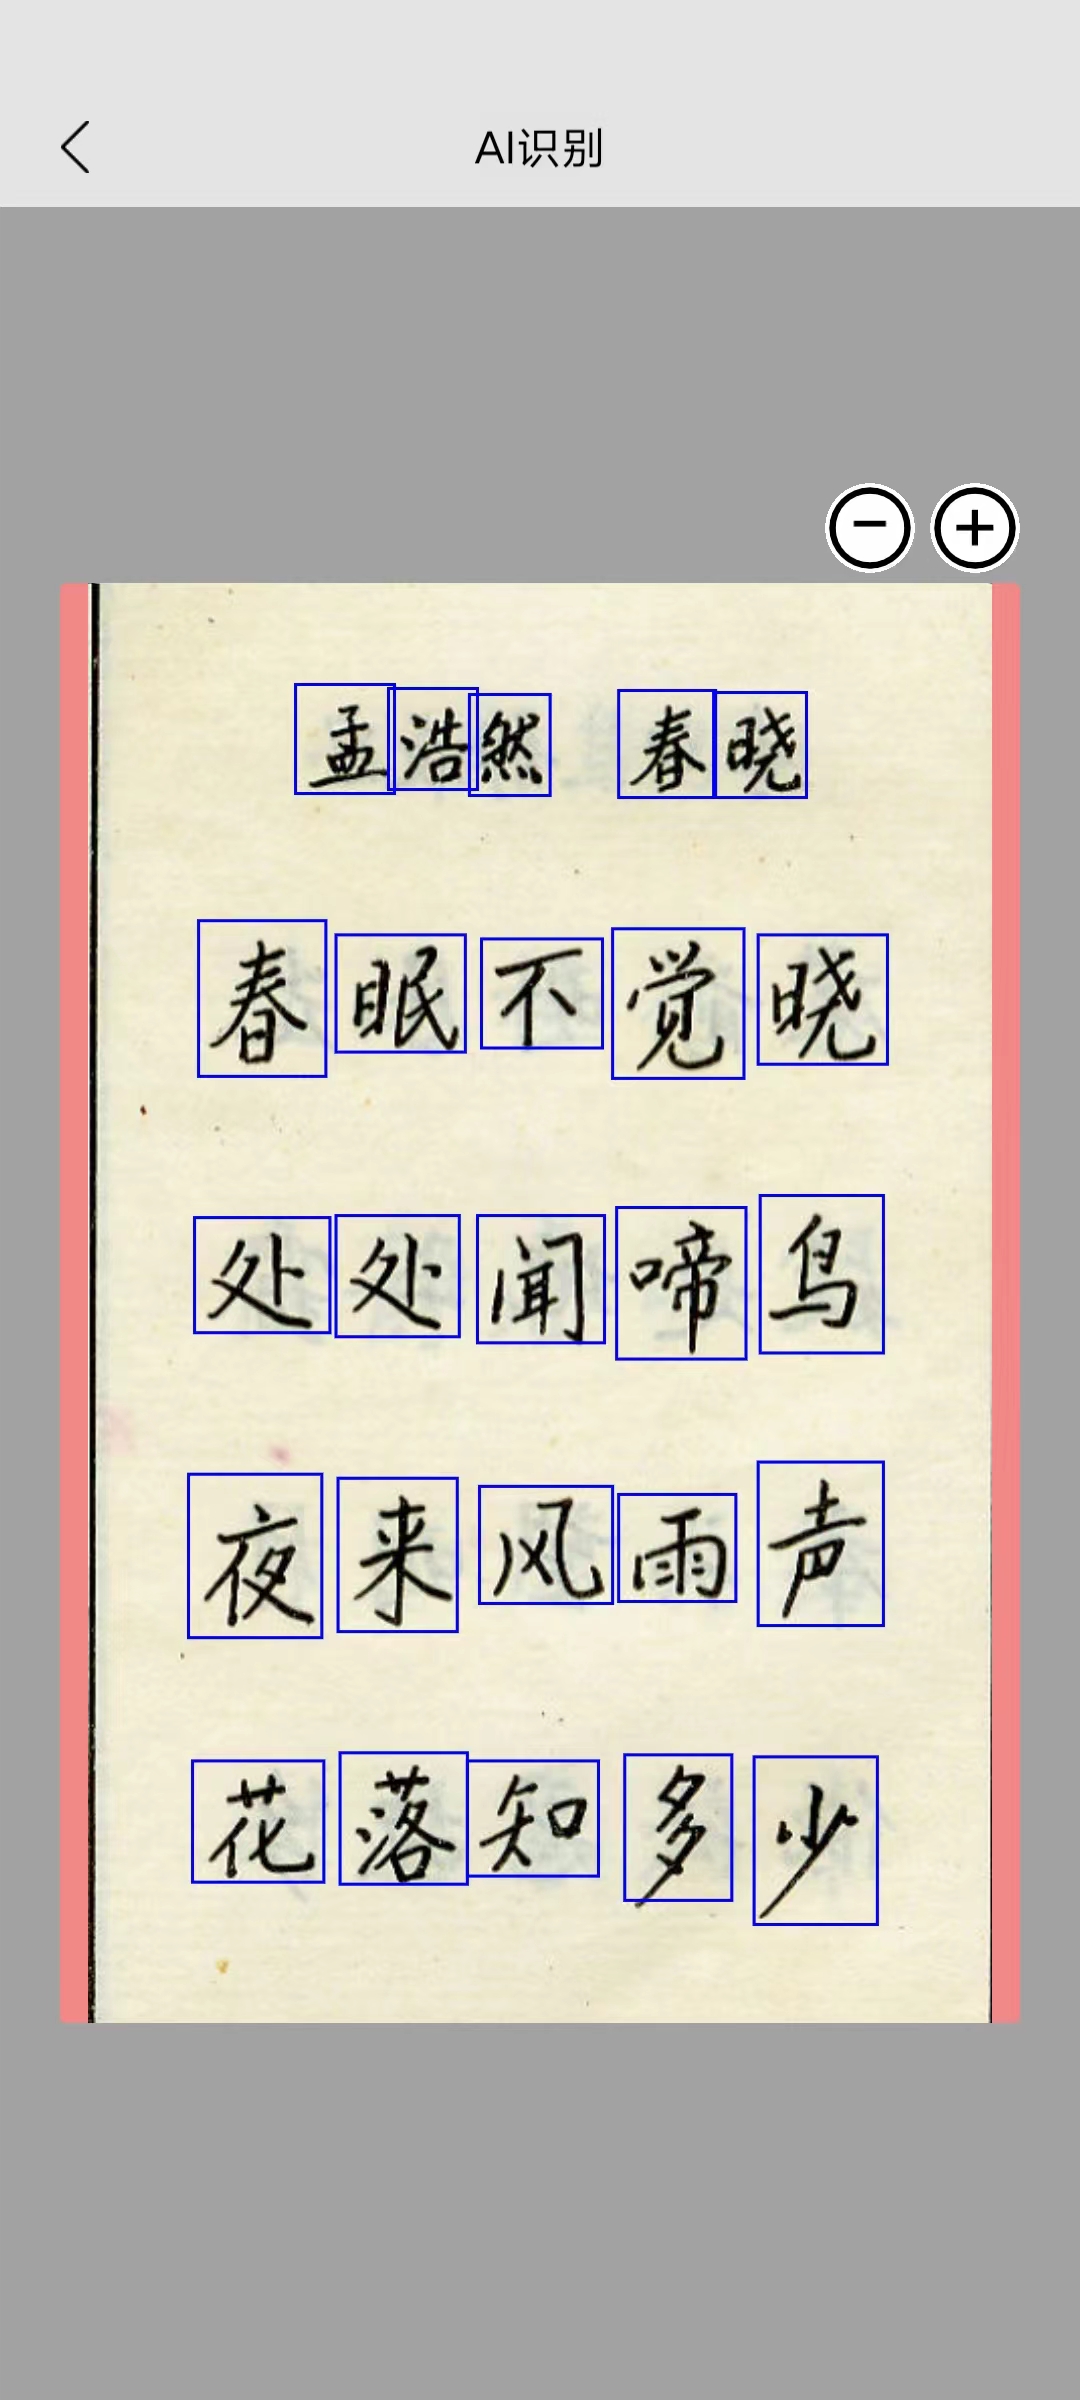 AI识别
孟浩然 春晓
春眠不觉晓
处处闻啼鸟
夜来风雨声
花落知多少